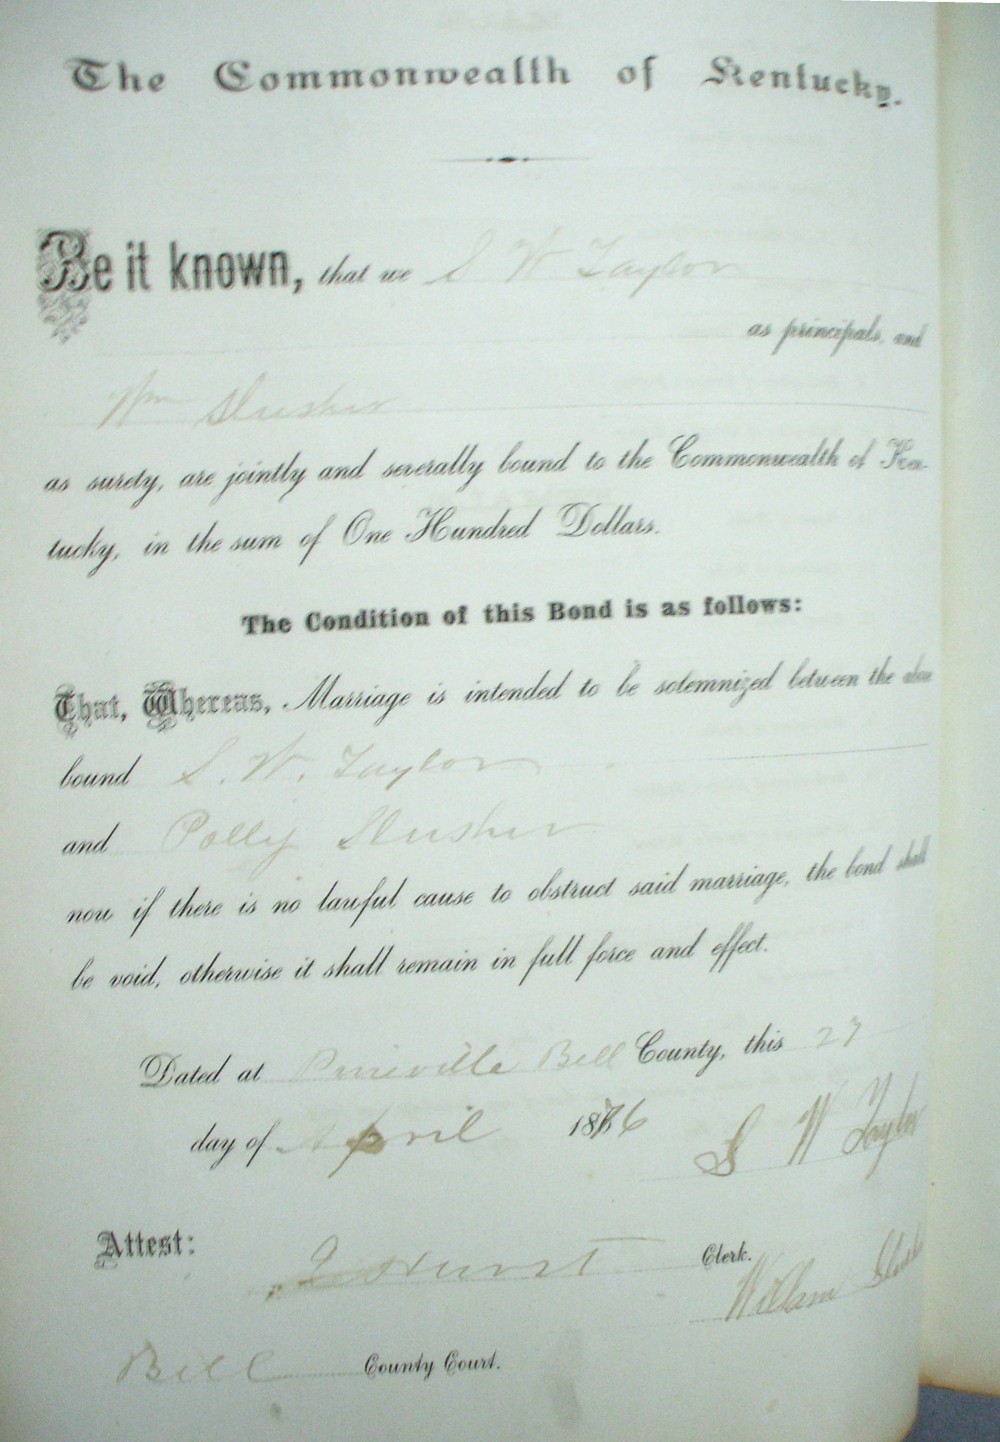 The Commonwealth of Kentucky.
Be it known, that we S W Taylor
as principals, and
Wm Slusher
as surety, are jointly and severally bound to the Commonwealth of Ken-
tucky, in the sum of One Hundred Dollars.
The Condition of this Bond is as follows:
That, Whereas, Marriage is intended to be solemnized between the above
bound S. W. Taylor
and Polly Slusher
now if there is no lawful cause to obstruct said marriage, the bond shall
be void, otherwise it shall remain in full force and effect.
Dated at Pineville Bell County, this 27
day of April 1876
S W Taylor
Attest: Hurst Clerk.
William Slusher
Bell County Court.